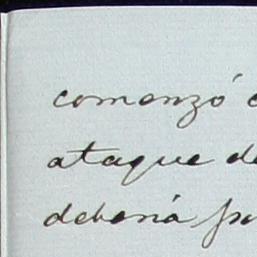 comenzó
ataque de
debería